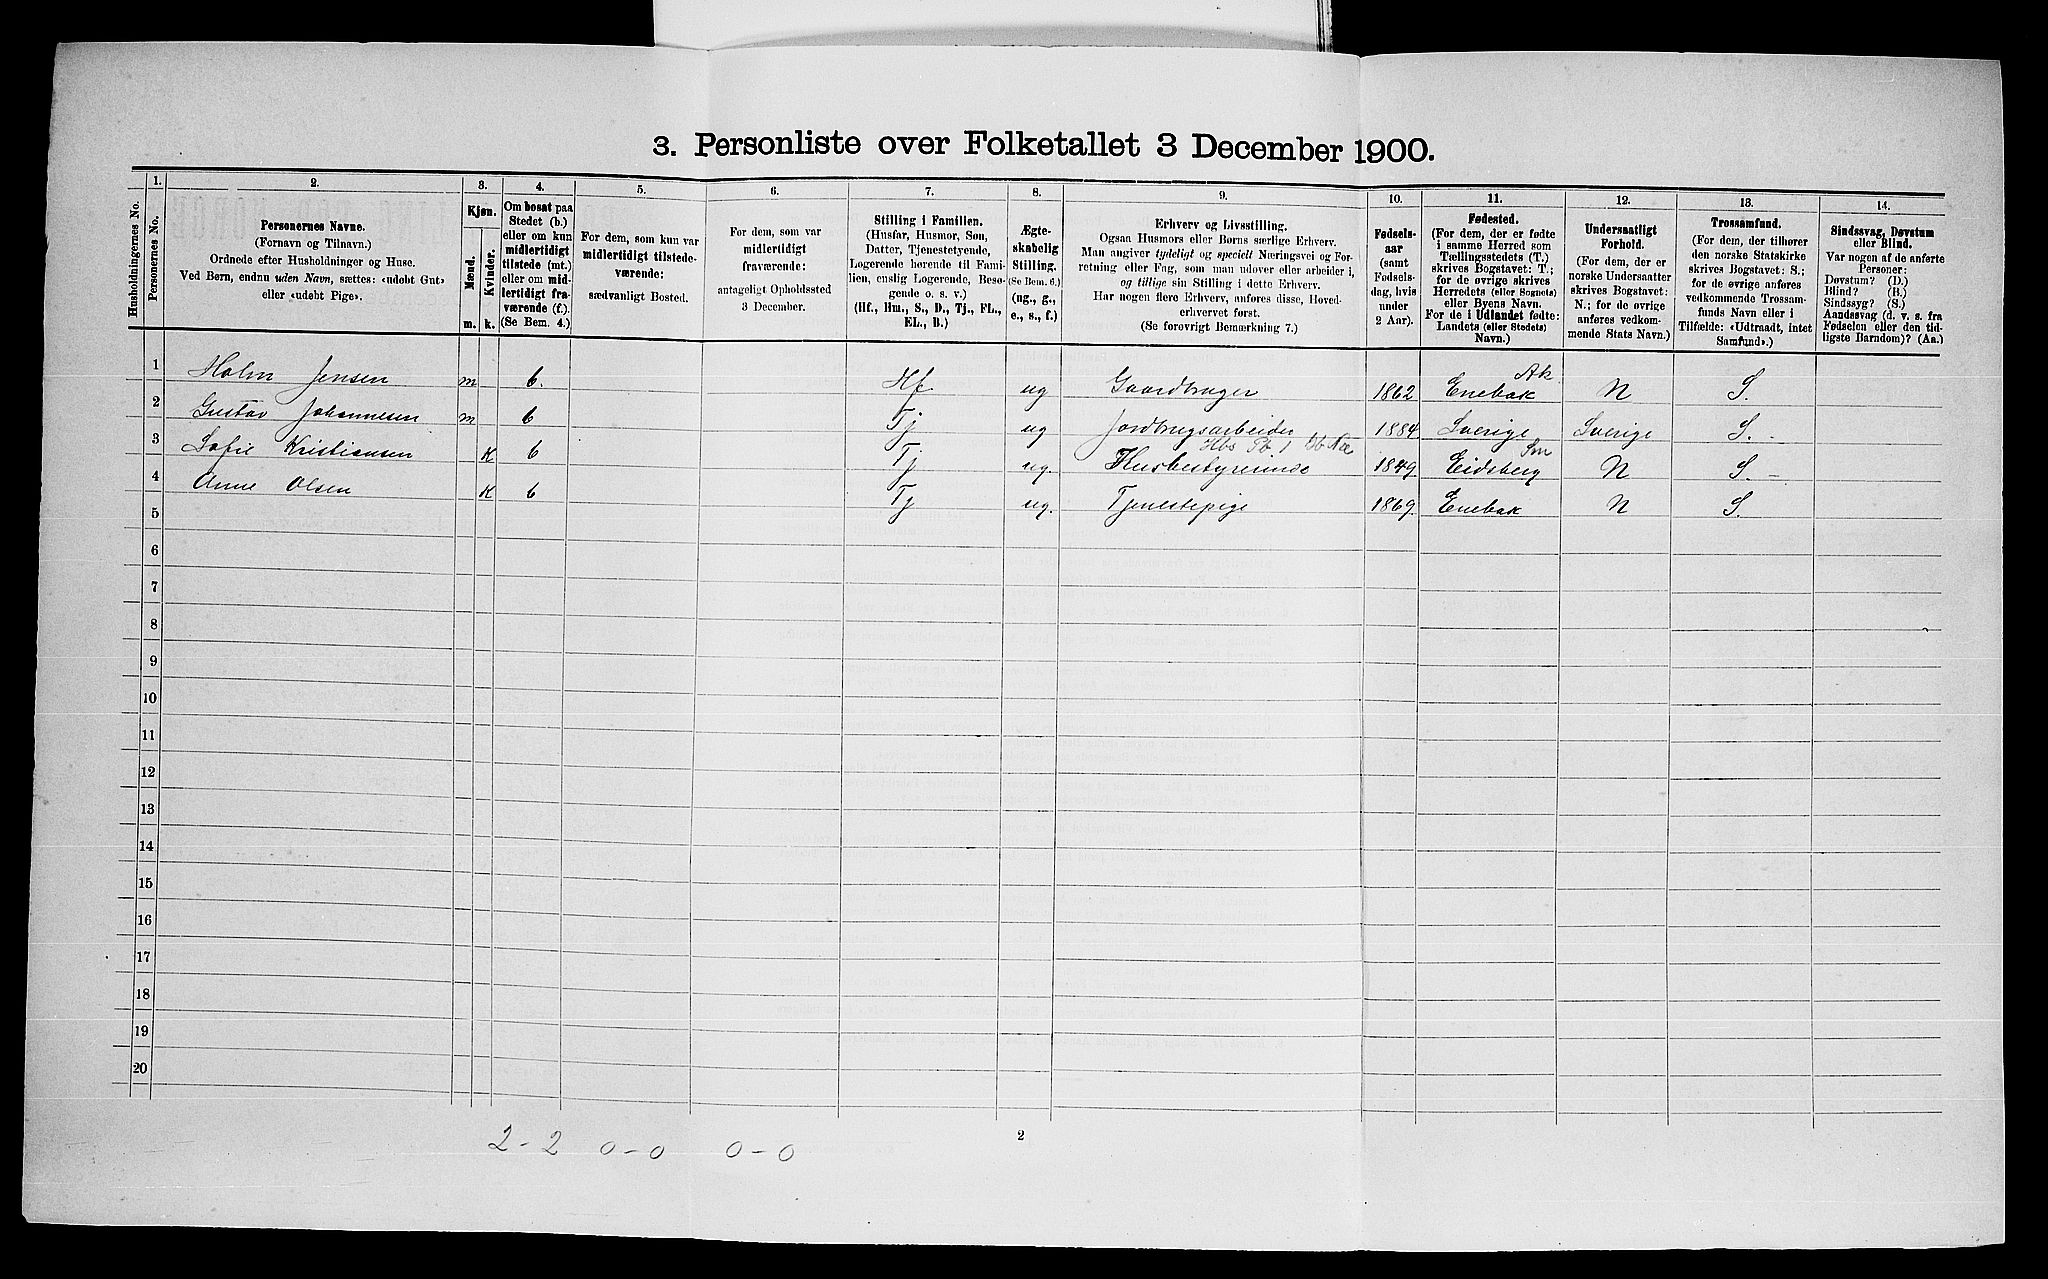 3. Personliste over Folketallet 3 December 1900.
Husholdningernes No.
1.
Personernes No.
2.
Personernes Navne.
(Fornavn og Tilnavn.)
Ordnede efter Husholdninger og Huse.
Ved Børn, endnu uden Navn, sættes: «udøbt Gut»
eller «udøbt Pige».
3.
Kjøn.
Mænd.
Kvinder.
m. k.
4.
Om bosat paa
Stedet (b.)
eller om kun
midlertidigt
tilstede (mt.)
eller om mid-
lertidigt fra-
værende (f.).
(Se Bem. 4.)
5.
For dem, som kun var
midlertidigt tilstede-
værende:
sædvanligt Bosted.
6.
For dem, som var
midlertidigt
fraværende:
antageligt Opholdssted
3 December.
7.
Stilling i Familien.
(Husfar, Husmor, Søn,
Datter, Tjenestetyende,
Logerende hørende til Fami-
lien, enslig Logerende, Besø-
gende o. s. v.)
(Hf., Hm., S., D., Tj., FL.,
EL., B.)
8.
Ægte-
skabelig
Stilling.
(Se Bem. 6.)
(ug., g.,
e., s., f.)
9.
Erhverv og Livsstilling.
Ogsaa Husmors eller Børns særlige Erhverv.
Man angiver tydeligt og specielt Næringsvei og For-
retning eller Fag, som man udover eller arbeider i,
og tillige sin Stilling i dette Erhverv.
Har nogen flere Erhverv, anføres disse, Hoved-
erhvervet først.
(Se forøvrigt Bemærkning 7.)
10.
Fødsels-
aar
(samt
Fødsels-
dag, hvis
under
2 Aar).
11.
Fødested.
(For dem, der er fødte
i samme Herred som
Tællingsstedets (T.)
skrives Bogstavet: T.;
for de øvrige skrives
Herredets (eller Sognets)
eller Byens Navn.
For de i Udlandet fødte:
Landets (eller Stedets)
Navn.)
12.
Undersaatligt
Forhold.
(For dem, der er
norske Undersaatter
skrives Bogstavet:
N.; for de øvrige
anføres vedkom-
mende Stats Navn.)
13.
Trossamfund.
(For dem, der tilhører
den norske Statskirke
skrives Bogstavet: S.;
for de øvrige anføres
vedkommende Trossam-
funds Navn eller i
Tilfælde: «Udtraadt, intet
Samfund».)
14.
Sindssvag, Døvstum
eller Blind.
Var nogen af de anførte
Personer:
Døvstum? (D.)
Blind? (B.)
Sindssyg? (S.)
Aandssvag (d. v. s. fra
Fødselen eller den tid-
ligste Barndom)? (Aa.)
1 Holm Jensen m b. Hf ug Gaardbruger 1862 Enebak Ak. N S.
2 Gustav Johannesen m b Tj ug Jordbrugsarbeider 1884. Sverige Sverige S. -
3 Sofie Kristiansen K b Tj ug. Husbestyrerinde 1849 Eidsberg Sm N S. -
4 Anne Olsen K b Tj ug. Tjenestepige 1869. Enebak N S.
5
6
7
8
9
10
11
12
13
14
15
16
17
18
19
20
2-2 0-0 0-0
2